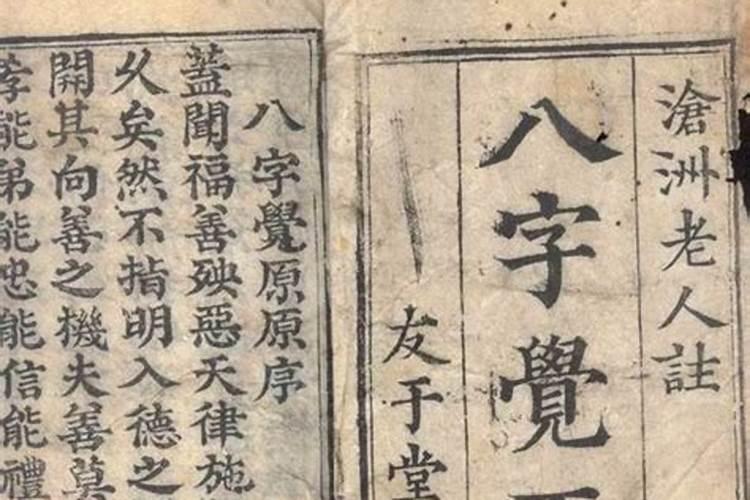 滄洲老人註
八字覺
友于堂
八字覺原原序
蓋聞福善殃惡天律施
久矣然不指明入德之
開其向善之機夫善莫
孝能弟能忠能信能禮